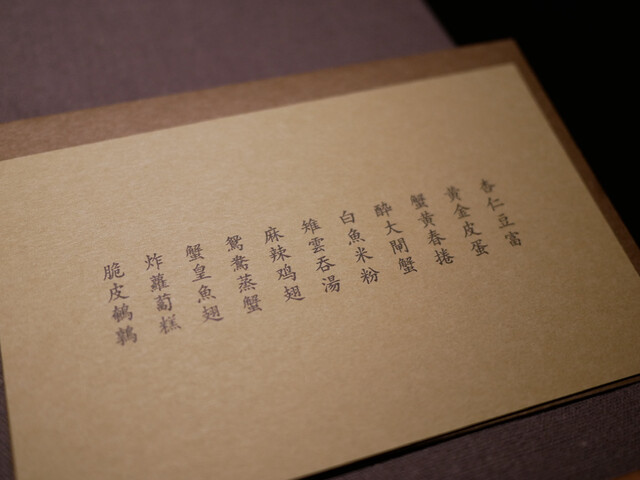 杏仁豆富
黄金皮蛋
蟹黄春捲
醉大閘蟹
白魚米粉
雉雲吞湯
麻辣鸡翅
鴛鴦蒸蟹
蟹皇魚翅
炸蘿蔔糕
脆皮鵪鶉